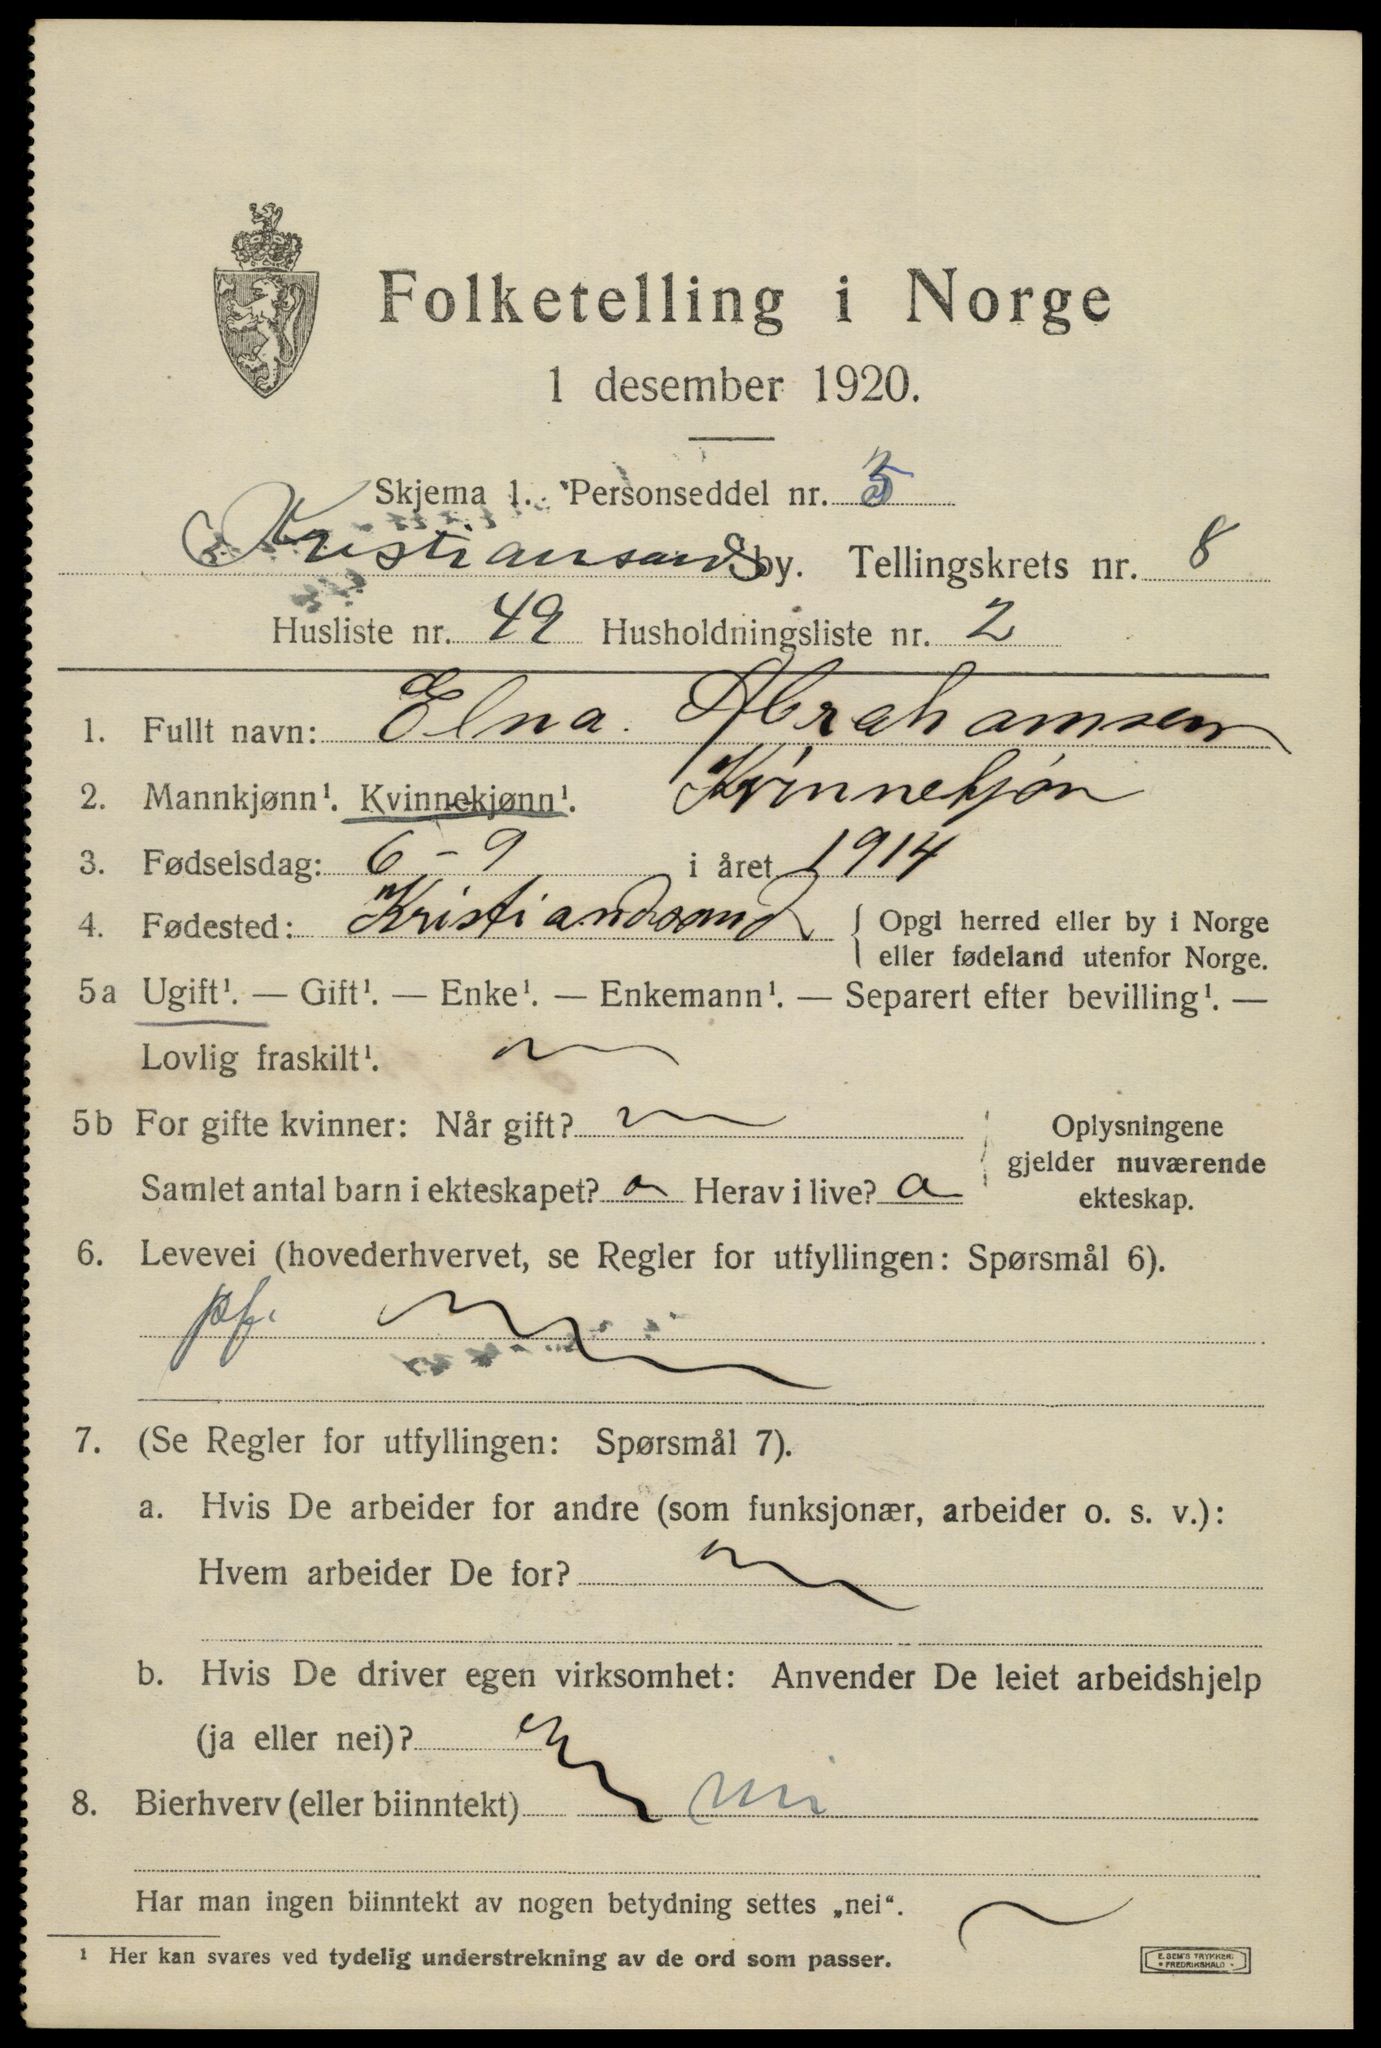 Folketelling i Norge
1 desember 1920.
Skjema 1. Personseddel nr.
Kristiansands by. Tellingskrets nr. 8
Husliste nr. 49 Husholdningsliste nr. 2
1. Fullt navn: Elna Abrahamsen
2. Mannkjønn¹. Kvinnekjønn¹. Kvinnekjøn
3. Fødselsdag: 6-9 i året 1914
4. Fødested: Kristiandsand { Opgi herred eller by i Norge
eller fødeland utenfor Norge.
5a Ugift¹. — Gift¹. — Enke¹. — Enkemann¹. — Separert efter bevilling¹. —
Lovlig fraskilt¹.
5b For gifte kvinner: Når gift?
Samlet antal barn i ekteskapet? Herav i live?
Oplysningene
gjelder nuværende
ekteskap.
6. Levevei (hovederhvervet, se Regler for utfyllingen: Spørsmål 6).
pf.
7. (Se Regler for utfyllingen: Spørsmål 7).
a. Hvis De arbeider for andre (som funksjonær, arbeider o. s. v.):
Hvem arbeider De for?
b. Hvis De driver egen virksomhet: Anvender De leiet arbeidshjelp
(ja eller nei)?
8. Bierhverv (eller biinntekt) nei
Har man ingen biinntekt av nogen betydning settes „nei“.
¹ Her kan svares ved tydelig understrekning av de ord som passer.
E. SEM'S TRYKKERI
FREDRIKSHALD